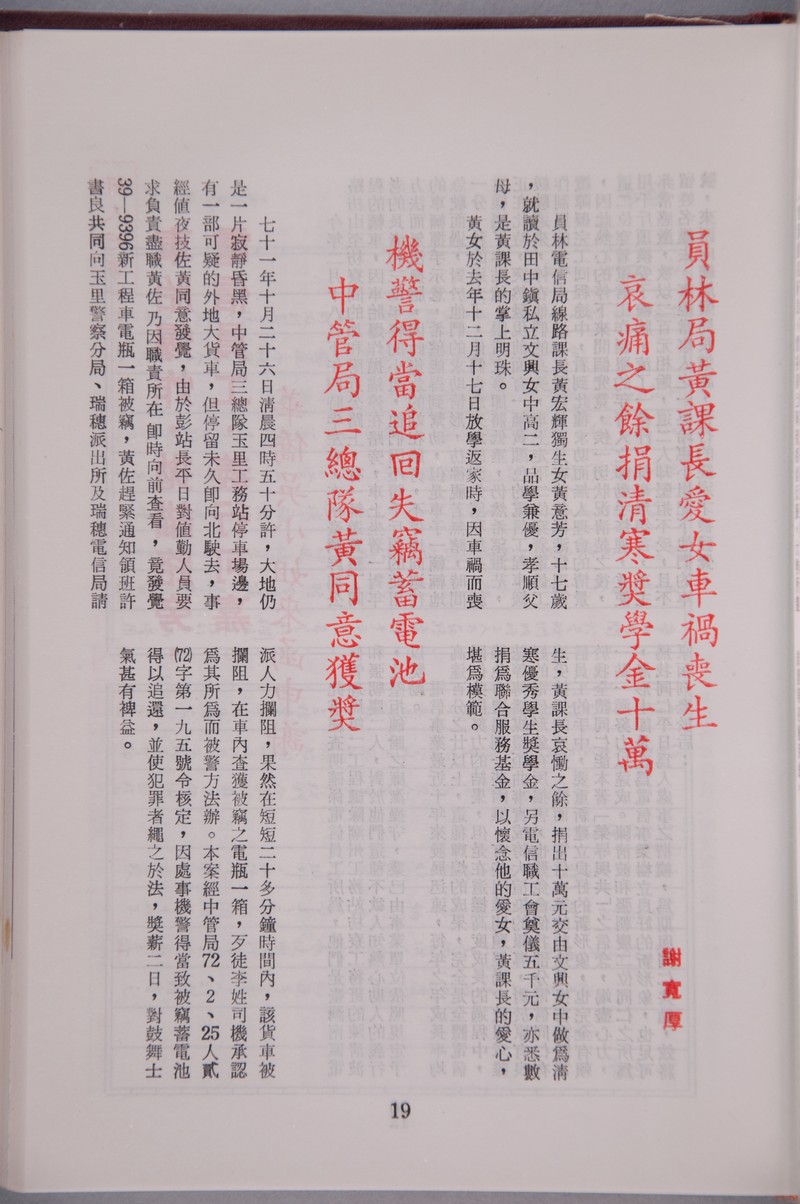 員林局黃課長愛女車禍喪生
哀痛之餘捐清寒獎學金十萬
謝寬厚
員林電信局線路課長黃宏輝獨生女黃意芳，十七歲
，就讀於田中鎭私立文興女中高二，品學兼優，孝順父
母，是黃課長的掌上明珠。
黃女於去年十二月十七日放學返家時，因車禍而喪
生，黃課長哀慟之餘，捐出十萬元交由文興女中做爲淸
寒優秀學生獎學金，另電信職工會奠儀五千元，亦悉數
捐爲聯合服務基金，以懷念他的愛女，黃課長的愛心，
堪爲模範。
機警得當追回失竊蓄電池
中管局三總隊黃同意獲獎
七十一年十月二十六日淸晨四時五十分許，大地仍
是一片寂靜昏黑，中管局三總隊玉里工務站停車場邊，
有一部可疑的外地大貨車，但停留未久卽向北駛去，事
經値夜技佐黃同意發覺，由於彭站長平日對値勤人員要
求負責盡職黃佐乃因職責所在卽時向前查看，竟發覺
39—9396新工程車電瓶一箱被竊，黃佐趕緊通知領班許
書良共同向玉里警察分局、瑞穗派出所及瑞穗電信局請
派人力攔阻，果然在短短二十多分鐘時間內，該貨車被
攔阻，在車內查獲被竊之電瓶一箱，歹徒李姓司機承認
爲其所爲而被警方法辦。本案經中管局72、2、25人貳
(72)字第一九五號令核定，因處事機警得當致被竊蓄電池
得以追還，並使犯罪者繩之於法，獎薪二日，對鼓舞士
氣甚有裨益。
19